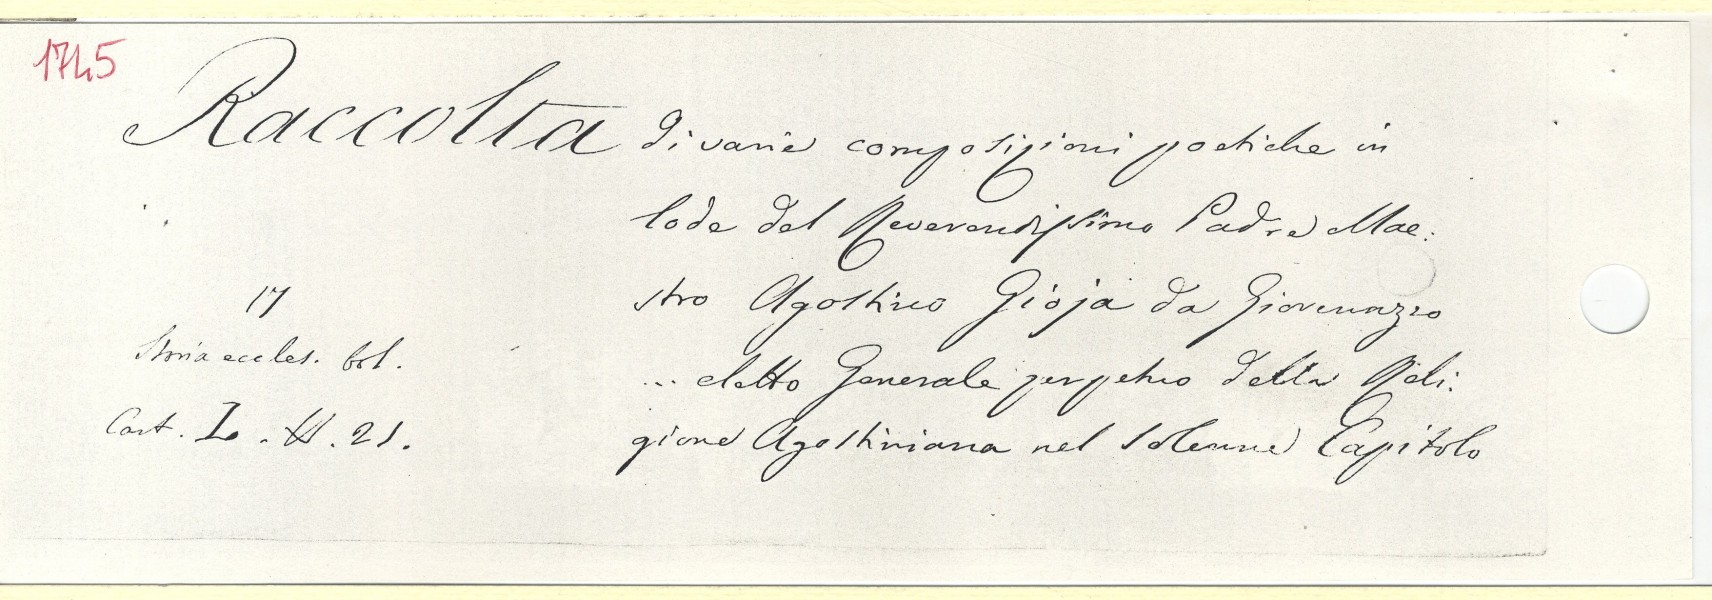 1745
Raccolta di varie composizioni poetiche in
lode del Reverendissimo Padre Mae:
stro Agostino Gioja da Giovenazzo
... eletto Generale perpetuo della Reli:
gione Agostiniana nel solenne Capitolo
17
Storia eccles. bol.
Cart. I. . 21.